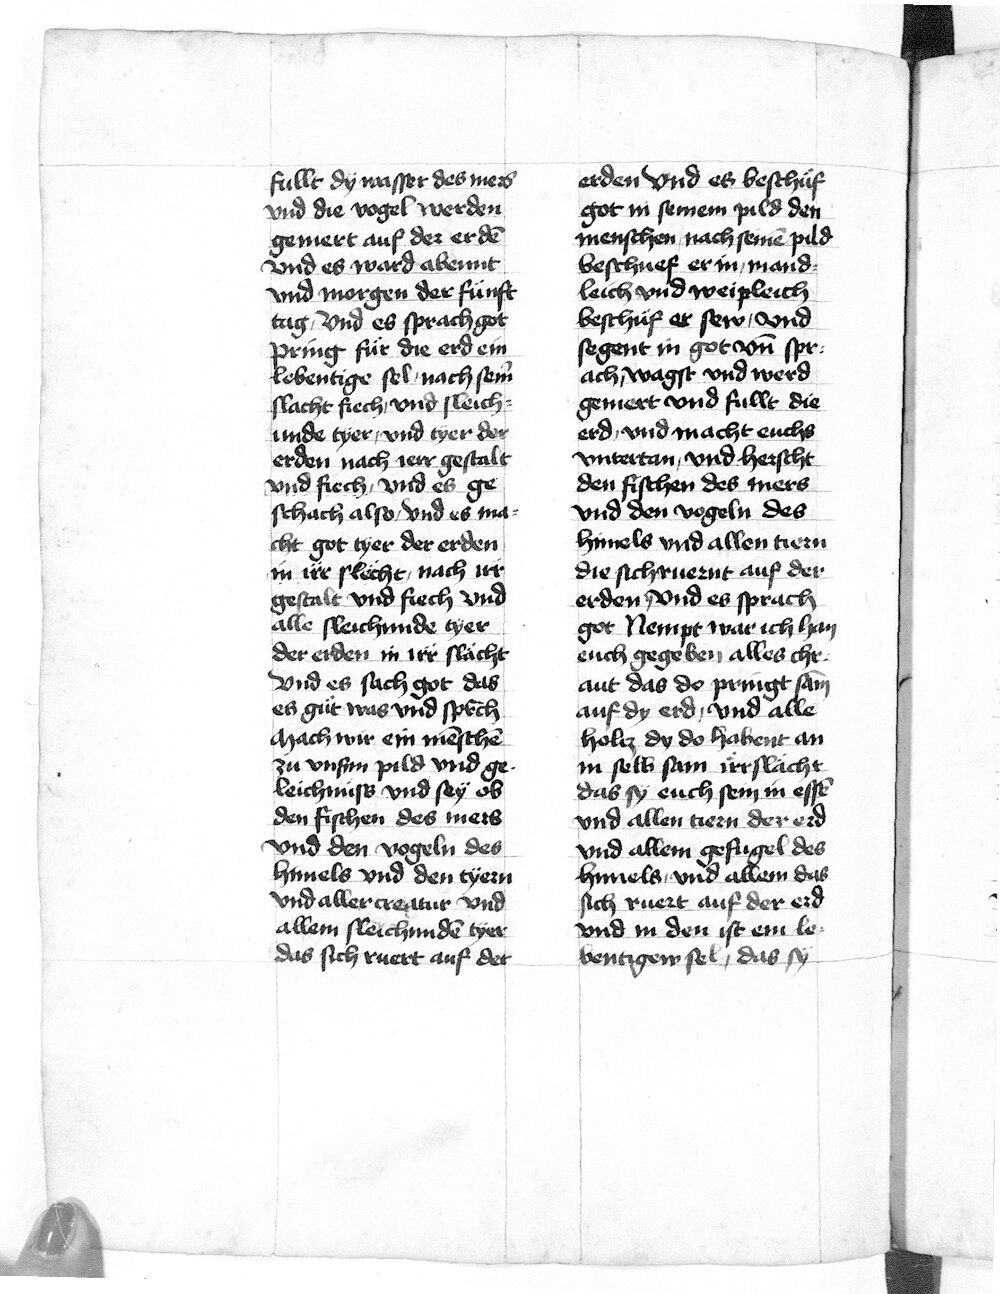 fullt dy wasser des mers
vnd die vogel werden
gemert auf der erdē
vnd es ward abennt
vnd morgen der fünft
tag / Vnd es sprach got
pring für die erd ein
lebentige sel / nach seim̄
slacht fiech / vnd sleich=
unde tyer / vnd tyer der
erden nach ierr gestalt
vnd fiech / vnd es ge
schach also / vnd es ma=
cht got tyer der erden
in irr slècht / nach irr
gestalt vnd fiech vnd
alle sleichunde tyer
der erden in irr slächt
Vnd es sach got das
es güt was vnd sprch
Mach wir ein mēschē
zu vnsm pild vnd ge-
leichnüss vnd sey ob
den fischen des mers
vnd den vogeln des
himels vnd den tÿern
vnd aller creatur vnd
allem sleichundē tyer
das sich ruert auf der
erden Vnd es beschüf
got in seinem pild den
menschen / nach seinē pild
beschuef er in / mand=
leich vnd weipleich
beschüf er sew / Vnd
segent in got vn̄ spr=
ach / wagst vnd werd
gemert vnd fullt die
erd / vnd macht euchs
vntertan / vnd herscht
den fischen des mers
vnd den vogeln des
himels vnd allen tiern
die sich ruernt auf der
erden / Vnd es sprach
got Nempt war ich han
euch gegeben alles chr=
aut das do pringt sām
auf dy erd / vnd alle
holtz dy do habent an
in selb sam irr slächt
das sy euch sein in essē
vnd allen tiern der erd
vnd allem gefugel des
himels / vnd allem das
sich ruert auf der erd
vnd in den ist ein le=
bentigew sel / das sy